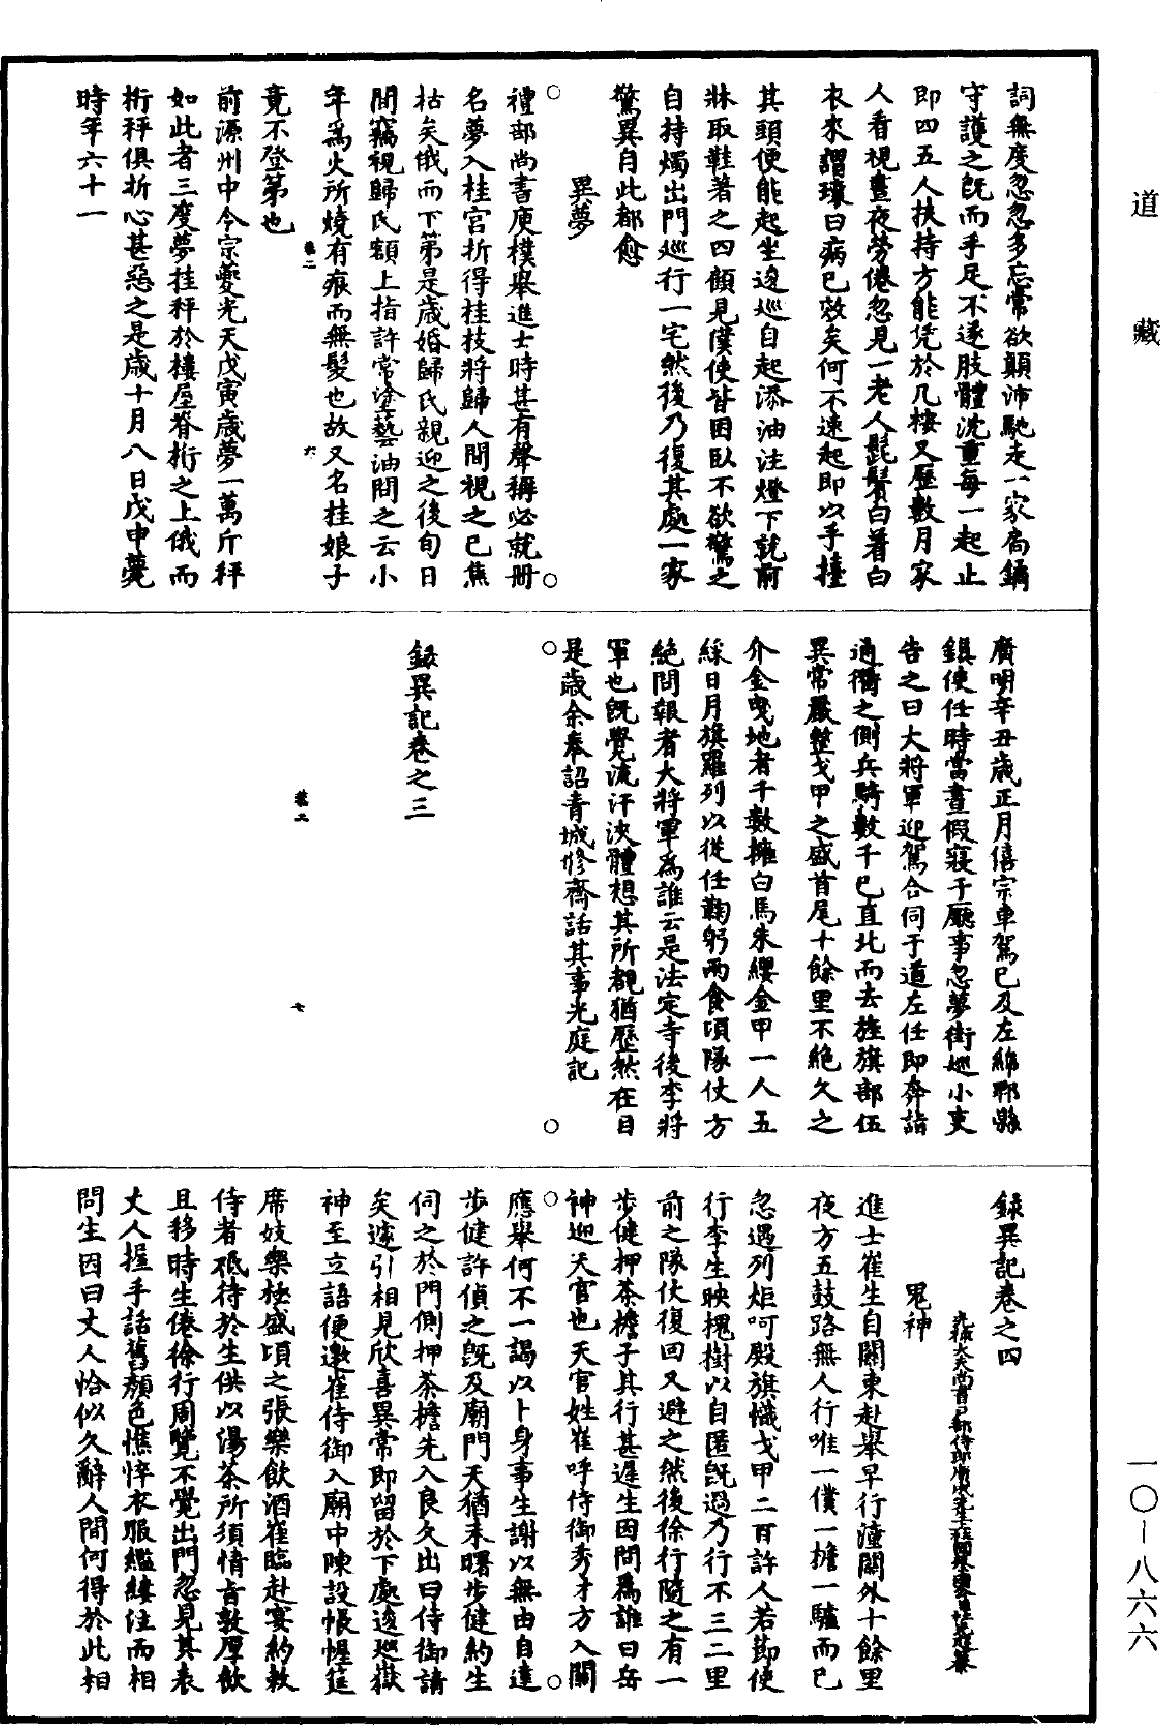 道藏
詞無度忽忽多忘常欲顛沛馳走一家扃鐍
守護之既而手足不遂肢體沈重每一起止
即四五人扶持方能凭於几榻又歷數月家
人看視晝夜勞倦忽見一老人髭鬢白著白
衣來謂瓌曰病已效矣何不速起即以手撞
其頭便能起坐逡巡自起添油注燈下就前
牀取鞋著之四顧見僕使皆困臥不欲驚之
自持燭出門巡行一宅然後乃復其處一家
驚異自此都愈
異夢
禮部尚書庾樸舉進士時甚有聲稱必就册
名夢入桂官折得桂枝將歸人間視之已焦
枯矣俄而下第是歲婚歸氏親迎之後旬日
間竊視歸氏額上指許常塗藝油問之云小
年爲火所燒有痕而無髮也故又名桂娘子
竟不登第也
前源州中令宗夔光天戊寅歲夢一萬斤秤
如此者三度夢挂秤於樓屋脊桁之上俄而
桁秤俱折心甚惡之是歲十月八日戊申薨
時年六十一
廣明辛丑歲正月僖宗車駕已及左綿郫縣
鎮使任時當晝假寢于廳事忽夢街巡小吏
告之曰大將軍迎駕合伺于道左任即奔詣
通衢之側兵騎數千已直北而去旌旗部伍
異常嚴整戈甲之盛首尾十餘里不絕久之
介金曳地者千數擁白馬朱纓金甲一人五
綵日月旗羅列以從任鞠躬兩食頃隊仗方
絕問報者大將軍爲誰云是法定寺後李將
軍也既覺流汗浹體想其所覩猶歷然在目
是歲余奉詔青城修齋話其事光庭記
錄異記卷之三
錄異記卷之四
鬼神
進士崔生自關東赴舉早行潼關外十餘里
夜方五鼓路無人行唯一僕一擔一驢而已
忽遇列炬呵殿旗幟戈甲二百許人若節使
行李生映槐樹以自匿既過乃行不三二里
前之隊仗復回又避之然後徐行隨之有一
步健押茶檐子其行甚遲生因問爲誰曰岳
神迎天官也天官姓崔呼侍御秀才方入關
應舉何不一謁以卜身事生謝以無由自達
步健許偵之既及廟門天猶未曙步健約生
伺之於門側押茶檐先入良久出曰侍御請
矣遽引相見欣喜異常即留於下處逡巡嶽
神至立語便邀崔侍御入廟中陳設帳幄筵
席妓樂極盛頃之張樂飲酒崔臨赴宴約敕
侍者祗待於生供以湯茶所須情旨敦厚飲
且移時生倦徐行周覽不覺出門忽見其表
丈人握手話舊顏色憔悴衣服繿縷泣而相
問生因曰丈人恰似久辭人間何得於此相
一〇—八六六